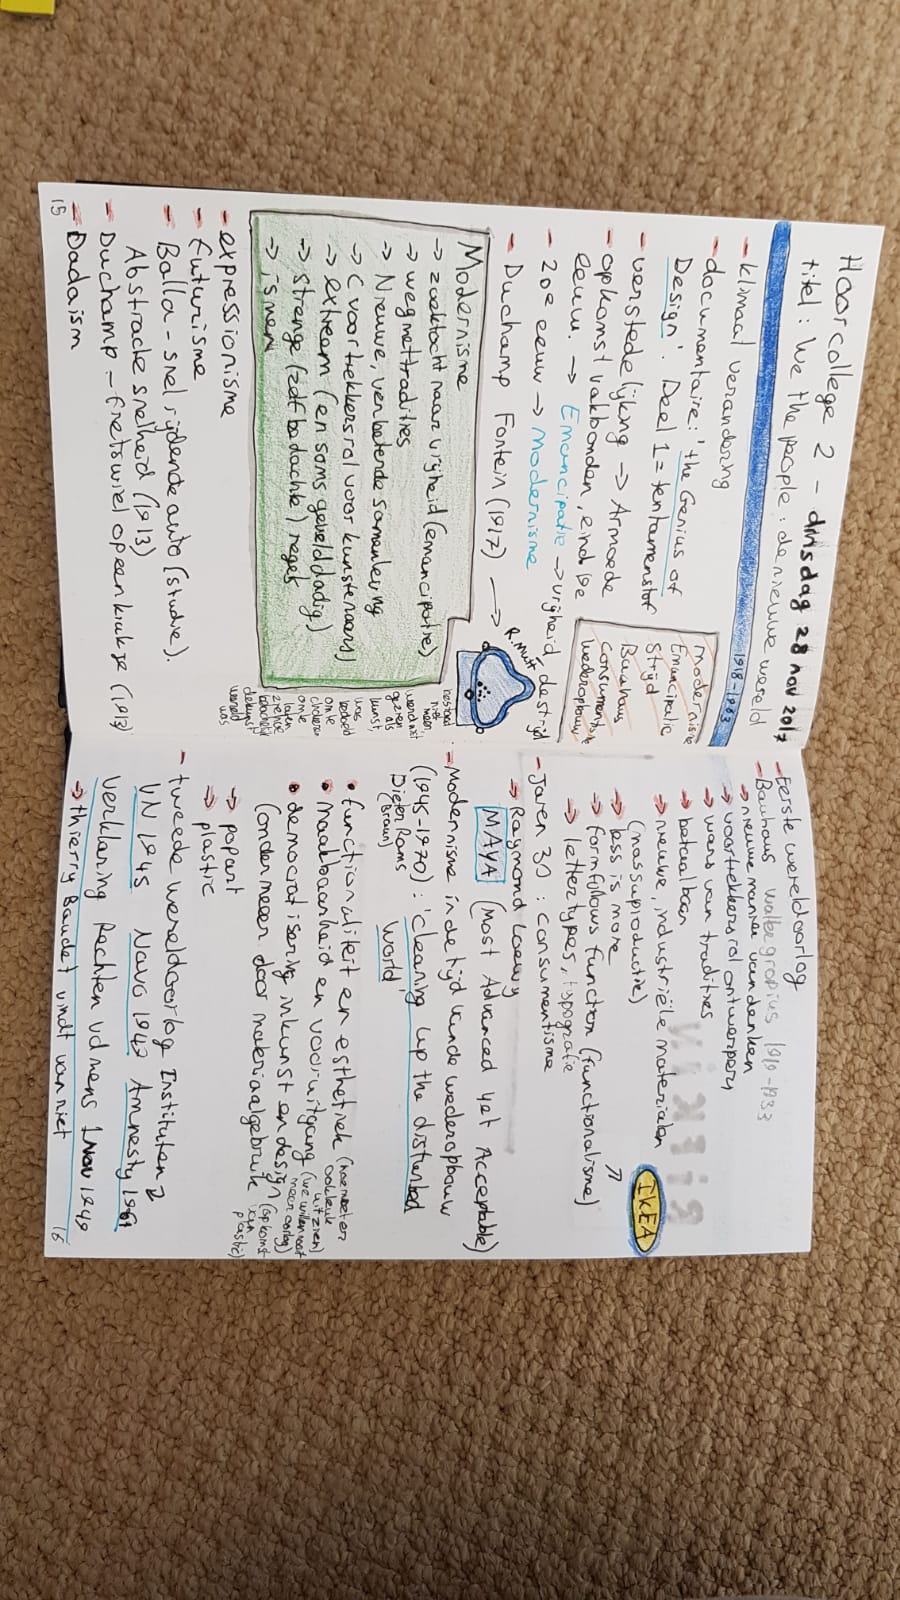 Hoorcollege 2 - dinsdag 28 nov 2017
titel: We the people: de nieuwe wereld
1918-1983
- klimaat verandering
- documentaire: 'the Genius of
Design'. Deel 1 = tentamenstof
- verstedelijking → Armoede
- opkomst vakbonden, eind 19e
eeuw. → Emancipatie → vrijheid, de strijd
- 20e eeuw → Modernisme
- Duchamp Fontein (1917) →
modernisme
Emancipatie
Strijd
Bauhaus
consumentisme
wederopbouw
R. Mutt
Modernisme
→ zoektocht naar vrijheid (emancipatie)
→ weg met tradities
→ Nieuwe, verbeterde samenleving
→ (voortrekkersrol voor kunstenaars)
→ extreem (en soms gewelddadig)
→ strenge (zelfbedachte) regels
→ ismen
bestaat
niet
meer,
werd niet
gezien als
kunst,
was
bedoeld
om te
laten
zien
de kunst
wereld
was
- expressionisme
- futurisme
- Balla - snel rijdende auto (studie).
Abstracte snelheid (1913)
- Duchamp - fietswiel op een krukje (1913)
- Dadaism
15
- Eerste wereldoorlog
- Bauhaus walter gropius 1919-1933
→ nieuwe manier van denken
→ voortrekkersrol ontwerpers
→ wars van tradities
→ betaalbaar
→ nieuwe, industriële materialen
(massaproductie)
IKEA
→ less is more
→ form follows function (functionalisme)
→ lettertypes, typografie
- Jaren 30: consumentisme
→ Raymond Loewy
MAYA (Most Advanced Yet Acceptable)
- Modernisme in de tijd van de wederopbouw
(1945-1970): 'cleaning up the disturbed
world'
Dieter Rams
(Braun)
• functionaliteit en esthetiek (moest er ook leuk uitzien)
• maakbaarheid en vooruitgang (we willen nooit meer oorlog)
• democratisering in kunst en design
(onder meer door materiaalgebruik (opkomst van plastic)
→ popart
→ plastic
- tweede wereldoorlog Instituten 2
VN 1945 Navo 1949 Amnesty 1961
verklaring Rechten vd mens 1948
→ thierry Baudet vindt van niet
16